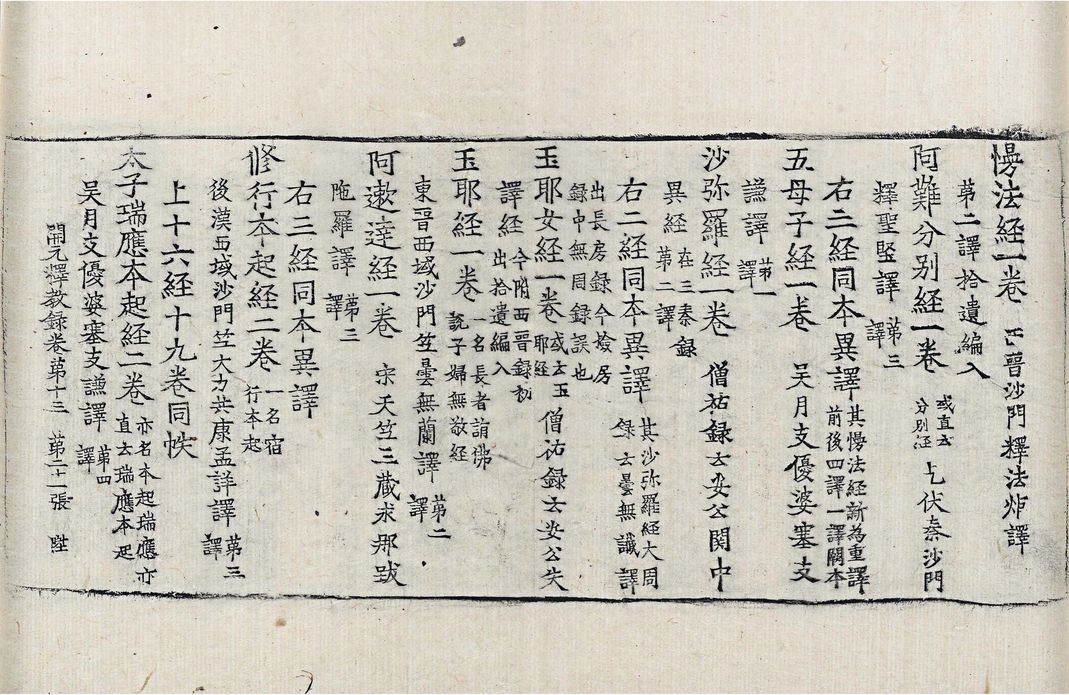 慢法經一卷 西晉沙門釋法炬譯
第二譯拾遺編入
阿難分別經一卷 或直云分別經 乞伏秦沙門
釋聖堅譯 第三譯
右二經同本異譯 其慢法經新為重譯前後四譯一譯闕本
五母子經一卷 吳月支優婆塞支
謙譯 第一譯
沙弥羅經一卷 僧祐録云安公関中
異經 在三秦録第二譯
右二經同本異譯 其沙弥羅經大周録云曇無讖譯
出長房録今撿房録中無周録誤也
玉耶女經一卷 或云玉耶經 僧祐録云安公失
譯經 今附西晉録初出拾遺編入
玉耶經一卷 一名長者詣佛說子婦無敬經
東晉西域沙門竺曇無蘭譯 第二譯
阿漱達經一卷 宋天竺三藏求那跋
陁羅譯 第三譯
右三經同本異譯
修行本起經二卷 一名宿行本起
後漢西域沙門竺大力共康孟詳譯 第三譯
上十六經十九卷同帙
太子瑞應本起經二卷 亦名本起瑞應亦直云瑞應本起
吳月支優婆塞支謙譯 第四譯
開元釋教録卷第十三 第二十一張 陞